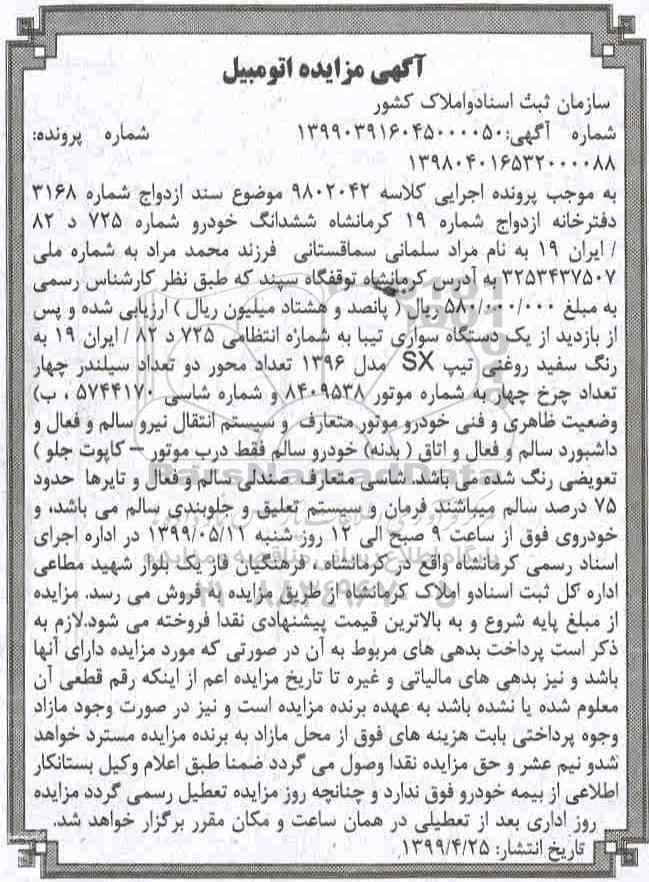 آگهی مزایده اتومبیل
سازمان ثبت اسنادواملاک کشور
شماره آگهی:۱۳۹۹۰۳۹۱۶۰۴۵۰۰۰۰۵۰ شماره پرونده:
۱۳۹۸۰۴۰۱۶۵۳۲۰۰۰۰۸۸
به موجب پرونده اجرایی کلاسه ۹۸۰۲۰۴۲ موضوع سند ازدواج شماره ۳۱۶۸
دفترخانه ازدواج شماره ۱۹ کرمانشاه ششدانگ خودرو شماره ۷۲۵ د ۸۲
/ ایران ۱۹ به نام مراد سلمانی سماقستانی فرزند محمد مراد به شماره ملی
۳۲۵۳۴۳۷۵۰۷ به آدرس کرمانشاه توقفگاه سپند که طبق نظر کارشناس رسمی
به مبلغ ۵۸۰/۰۰۰/۰۰۰ ریال ( پانصد و هشتاد میلیون ریال ) ارزیابی شده و پس
از بازدید از یک دستگاه سواری تیبا به شماره انتظامی ۷۲۵ د ۸۲ / ایران ۱۹ به
رنگ سفید روغنی تیپ SX مدل ۱۳۹۶ تعداد محور دو تعداد سیلندر چهار
تعداد چرخ چهار به شماره موتور ۸۴۰۹۵۳۸ و شماره شاسی ۵۷۴۴۱۷۰ ، ب)
وضعیت ظاهری و فنی خودرو موتور متعارف و سیستم انتقال نیرو سالم و فعال و
داشبورد سالم و فعال و اتاق ( بدنه) خودرو سالم فقط درب موتور – کاپوت جلو )
تعویضی رنگ شده می باشد. شاسی متعارف صندلی سالم و فعال و تایرها حدود
۷۵ درصد سالم میباشند فرمان و سیستم تعلیق و جلوبندی سالم می باشد، و
خودروی فوق از ساعت ۹ صبح الی ۱۲ روز شنبه ۱۳۹۹/۰۵/۱۱ در اداره اجرای
اسناد رسمی کرمانشاه واقع در کرمانشاه ، فرهنگیان فاز یک بلوار شهید مطاعی
اداره کل ثبت اسنادو املاک کرمانشاه از طریق مزایده به فروش می رسد. مزایده
از مبلغ پایه شروع و به بالاترین قیمت پیشنهادی نقدا فروخته می شود.لازم به
ذکر است پرداخت بدهی های مربوط به آن در صورتی که مورد مزایده دارای آنها
باشد و نیز بدهی های مالیاتی و غیره تا تاریخ مزایده اعم از اینکه رقم قطعی آن
معلوم شده یا نشده باشد به عهده برنده مزایده است و نیز در صورت وجود مازاد
وجوه پرداختی بابت هزینه های فوق از محل مازاد به برنده مزایده مسترد خواهد
شدو نیم عشر و حق مزایده نقدا وصول می گردد ضمنا طبق اعلام وکیل بستانکار
اطلاعی از بیمه خودرو فوق ندارد و چنانچه روز مزایده تعطیل رسمی گردد مزایده
روز اداری بعد از تعطیلی در همان ساعت و مکان مقرر برگزار خواهد شد.
تاریخ انتشار: ۱۳۹۹/۴/۲۵
ParsNamadData